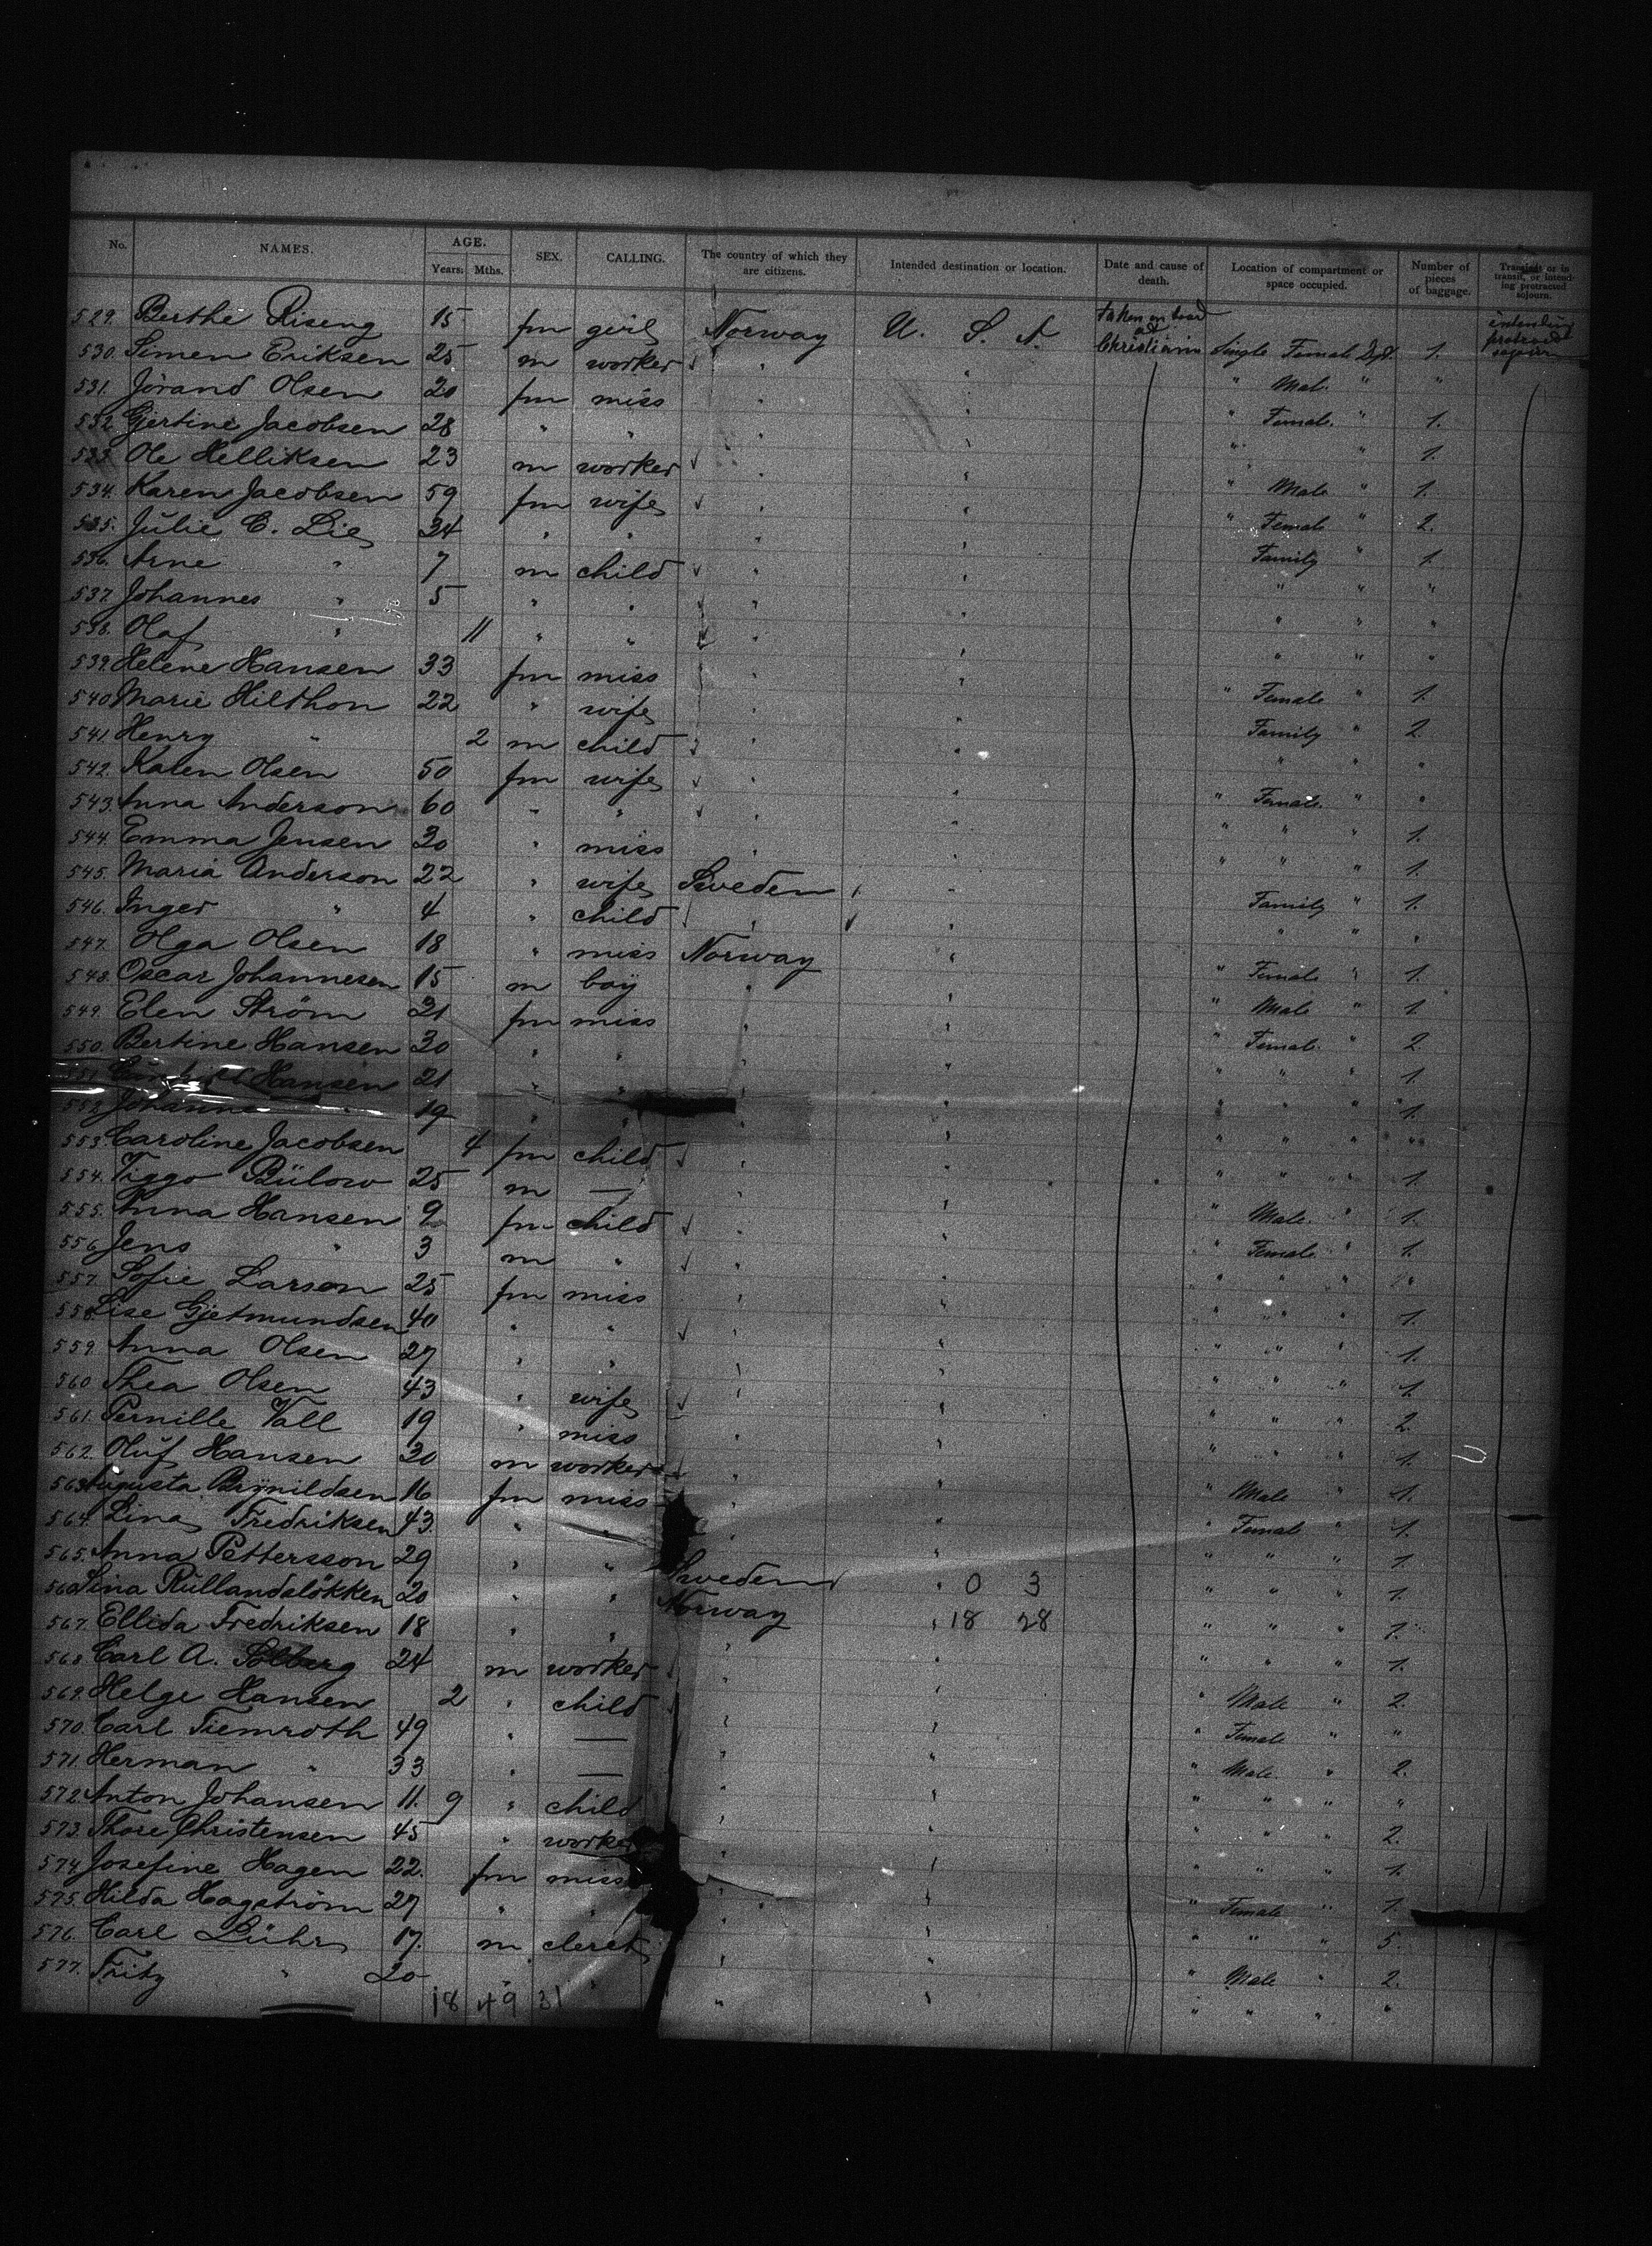 No. NAMES. AGE. Years. Mths. SEX. CALLING. The country of which they are citizens. Intended destination or location. Date and cause of death. Location of compartment or space occupied. Number of pieces of baggage. Transient or in transit, or intending protracted sojourn.
529. Berthe Riseng 15 fm girl Norway U. S. A. taken on board at Christiania Single Female Dpt. 1. intending protract sojourn
530. Simen Eriksen 25 m worker " " " Male " "
531. Jörand Olsen 20 fm miss " " " Female " 1.
532. Gjertine Jacobsen 28 " " " " " " " 1.
533. Ole Helliksen 23 m worker " " " Male " 1.
534. Karen Jacobsen 59 fm wife " " " Female " 2.
535. Julie C. Lie 34 " " " " Family " 1.
536. Arne " 7 m child " " " " "
537. Johannes " 5 " " " " " " "
538. Olaf " 11 " " " " " " "
539. Helene Hansen 33 fm miss " " " Female " 1.
540. Marie Hilthon 22 " wife " " Family " 2.
541. Henry " 2 m child " " " " "
542. Karen Olsen 50 fm wife " " " Female " "
543. Anna Anderson 60 " " " " " " " 1.
544. Emma Jensen 30 " miss " " " " " 1.
545. Maria Anderson 22 " wife Sweden " Family " 1.
546. Inger " 4 " child " " " " "
547. Olga Olsen 18 " miss Norway " " Female " 1.
548. Oscar Johannesen 15 m boy " " " Male " 1.
549. Elen Ström 21 fm miss " " " Female " 2.
550. Bertine Hansen 30 " " " " " " " 1.
551. Hansen 21 " " " " " " " 1.
552. Johanne " 19 " " " " " " " "
553. Caroline Jacobsen 4 fm child " " " " " 1.
554. Viggo Bülow 25 m — " " " Male " 1.
555. Anna Hansen 9 fm child " " " Female " 1.
556. Jens " 3 m " " " " " " "
557. Sofie Larsen 25 fm miss " " " " " 1.
558. Lise Gjetmundsen 40 " " " " " " " 1.
559. Anna Olsen 27 " " " " " " " 1.
560. Thea Olsen 43 " wife " " " " " 2.
561. Pernille Vall 19 " miss " " " " " 1.
562. Oluf Hansen 30 m worker " " " Male " 1.
563. Augusta Brynildsen 16 fm miss " " " Female " 1.
564. Lina Fredriksen 43 " " " " " " " 1
565. Anna Pettersson 29 " " Sweden " 0 3 " " " 1.
566. Sina Rullandslökken 20 " " Norway " 18 28 " " " 1.
567. Ellida Fredriksen 18 " " " " " " " 1.
568. Carl A. Solberg 24 m worker " " " Male " 2.
569. Helge Hansen 2 " child " " " Female " "
570. Carl Tiemroth 49 " — " " " Male " 2.
571. Herman " 33 " — " " " " " "
572. Anton Johansen 11. 9 " child " " " " " 2.
573. Thore Christensen 45 " worker " " " " " 1.
574. Josefine Hagen 22. fm miss " " " Female " 1.
575. Hilda Hagström 27 " " " " " " " 5.
576. Carl Lühr 17. m clerck " " " Male " 2.
577. Fritz " 20 " " " " " " " "
18 49 31